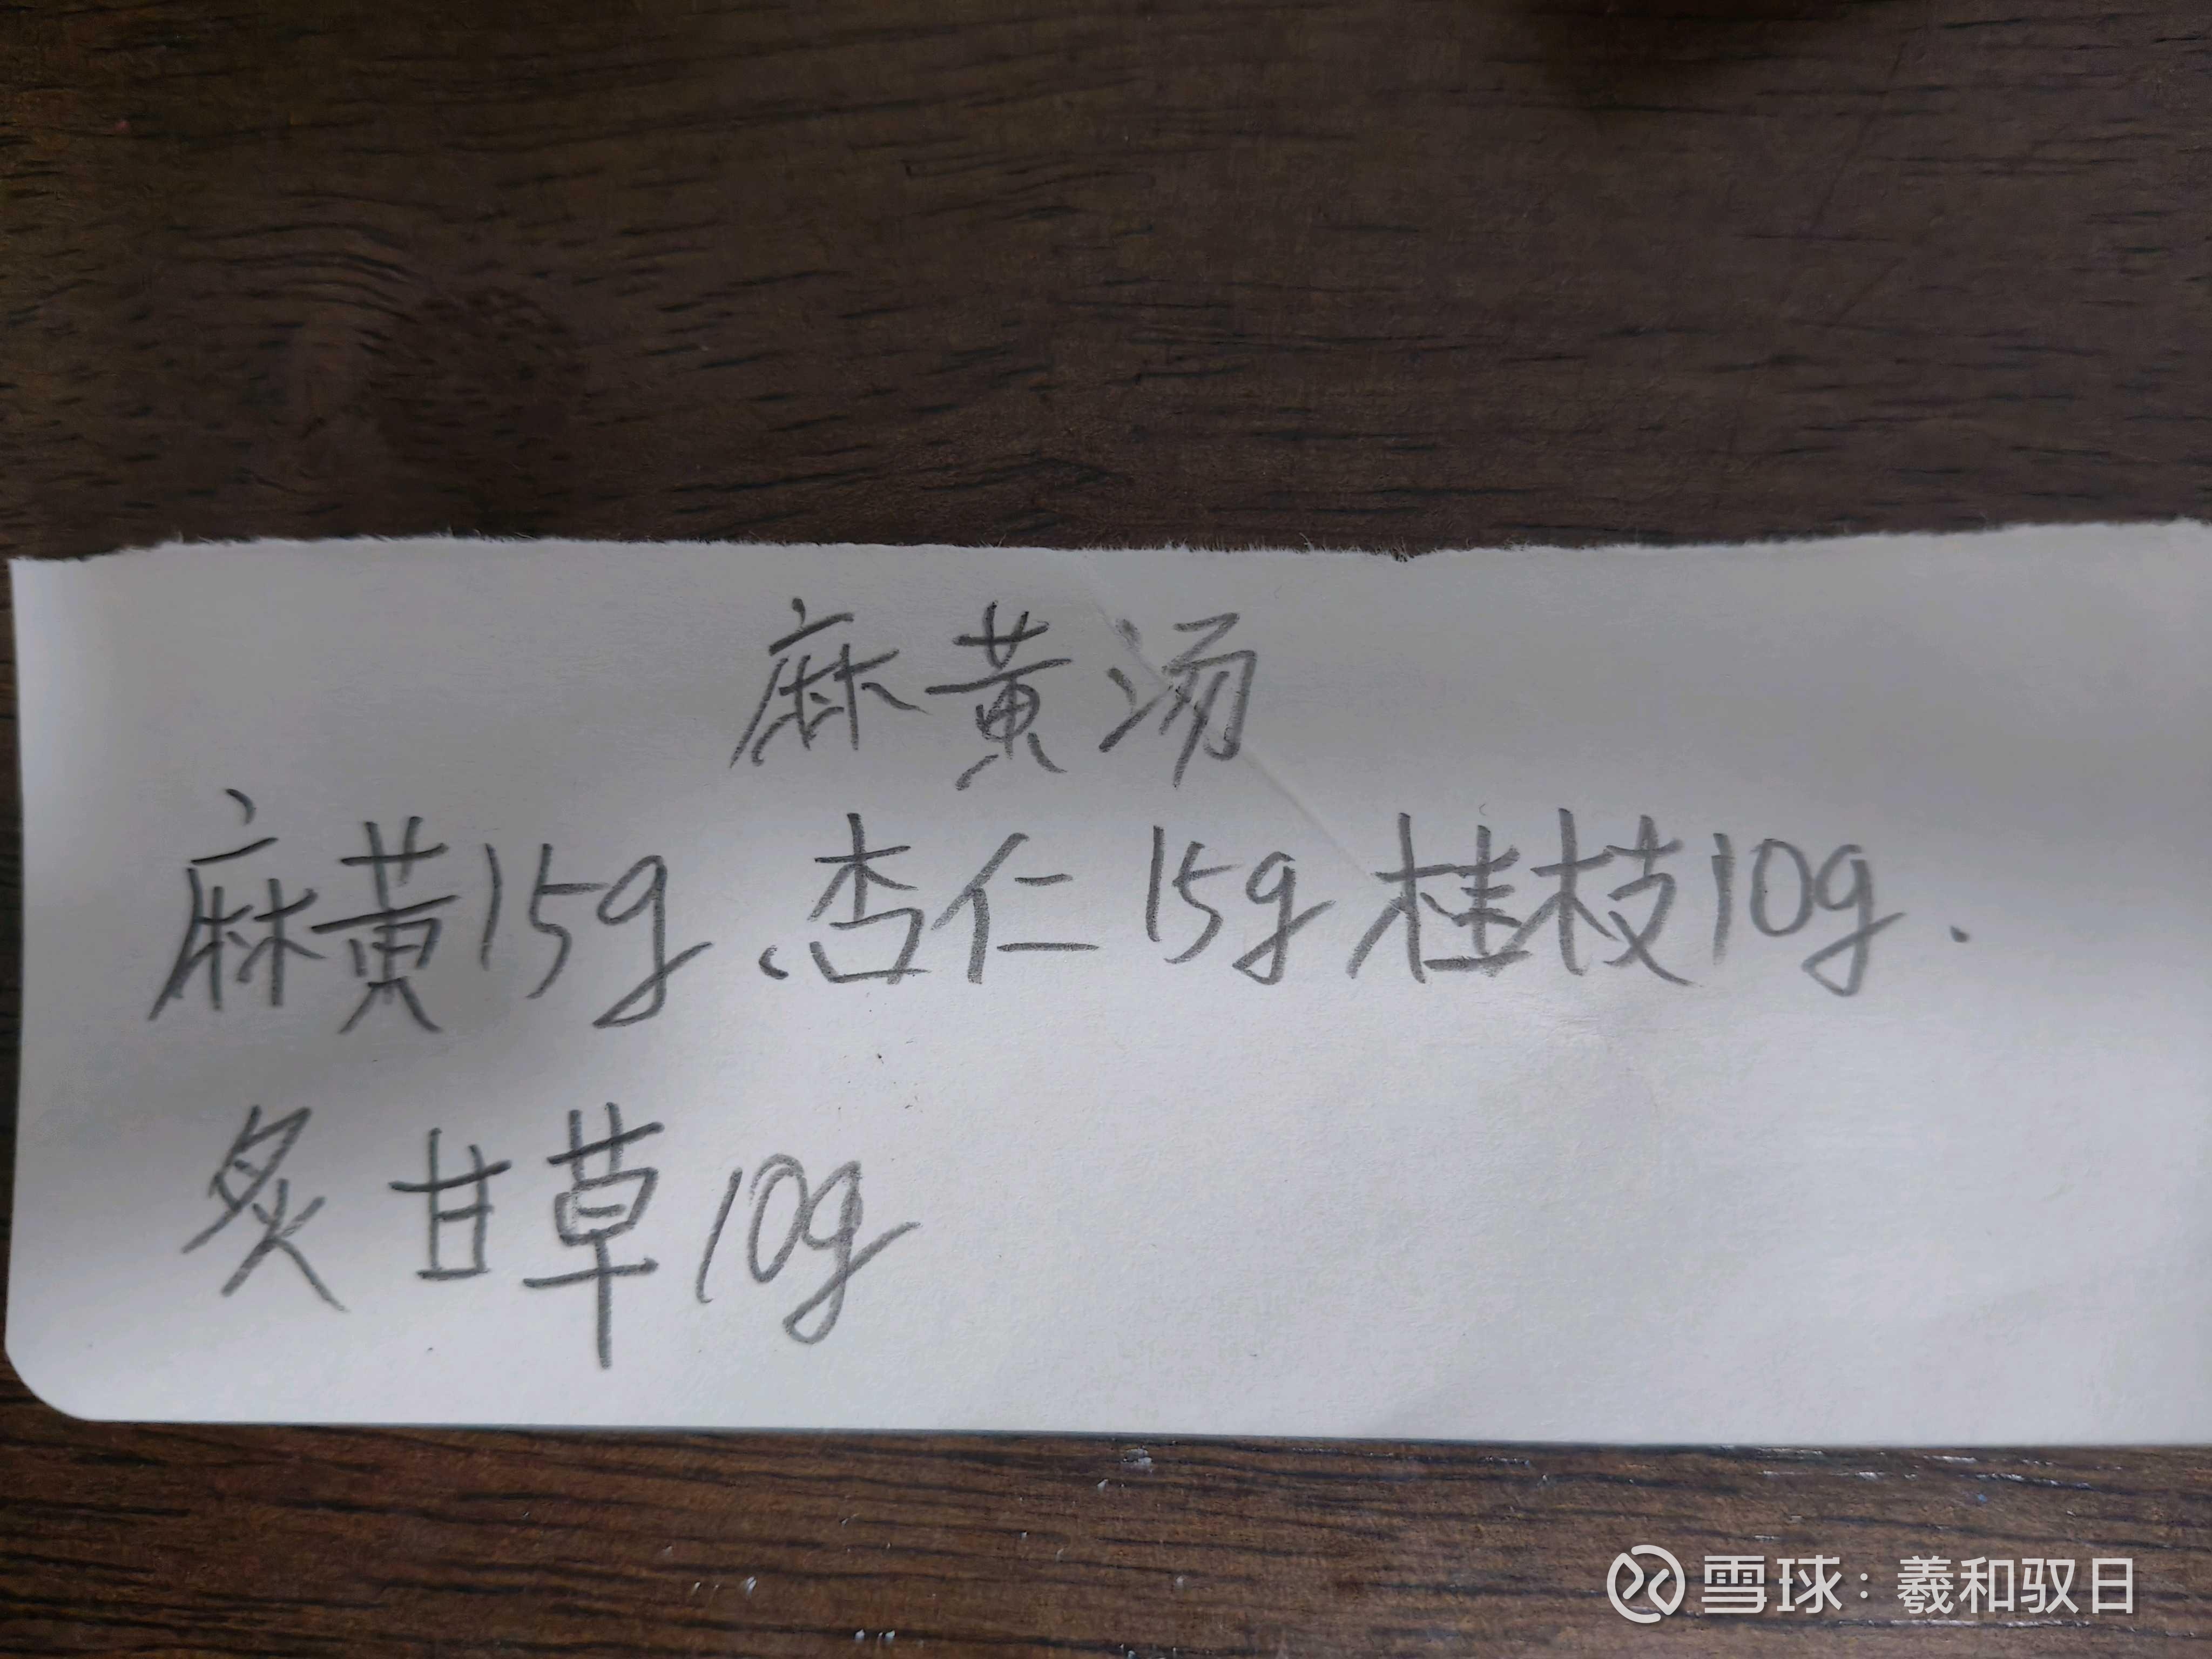 麻黄汤
麻黄15g、杏仁15g 桂枝10g.
炙甘草10g
雪球：羲和驭日